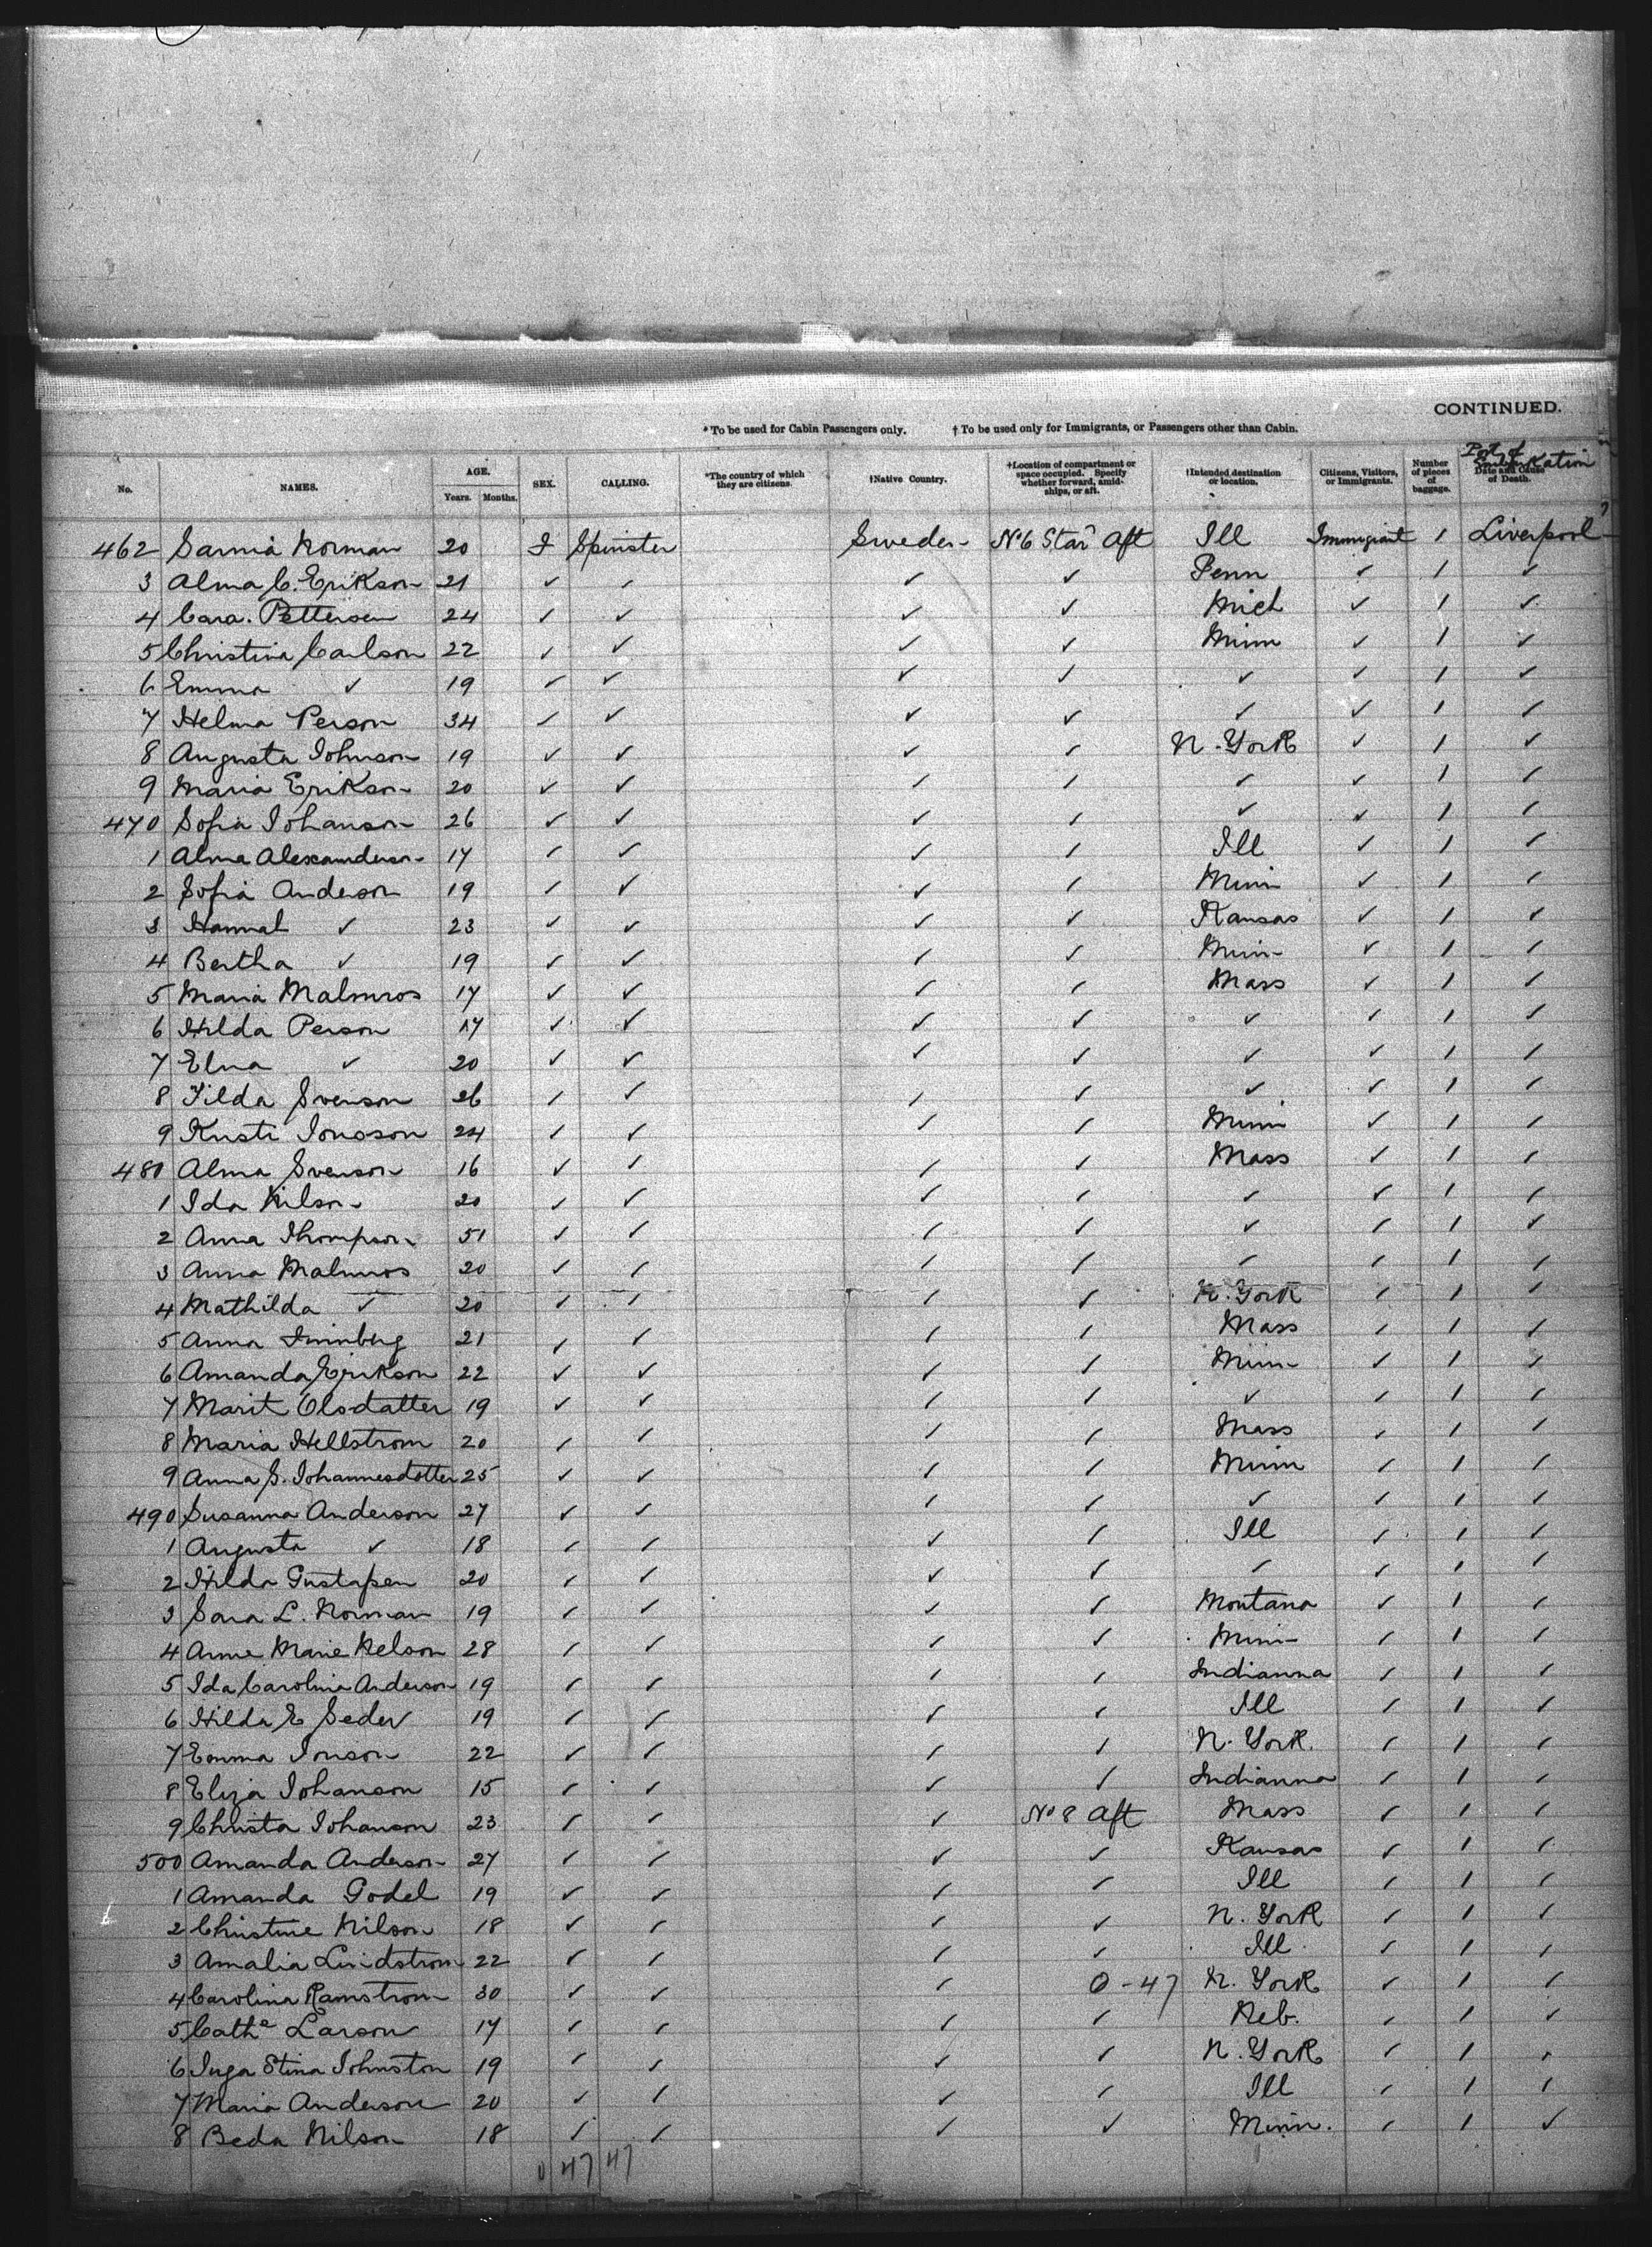 CONTINUED.
*To be used for Cabin Passengers only. †To be used only for Immigrants, or Passengers other than Cabin.
No. NAMES. AGE. Years. Months. SEX. CALLING. *The country of which they are citizens. †Native Country. †Location of compartment or space occupied. Specify whether forward, amidships, or aft. †Intended destination or location. Citizens, Visitors, or Immigrants. Number of pieces of baggage. Date and Cause of Death. Port of Embarkation
462 Sannia Norman 20 F Spinster Sweden No 6 Star Aft Ill Immigrant 1 Liverpool
3 Alma C. Erikson 21 ✓ ✓ ✓ ✓ Penn ✓ 1 ✓
4 Cara. Petterson 24 ✓ ✓ ✓ ✓ Mich ✓ 1 ✓
5 Christina Carlson 22 ✓ ✓ ✓ ✓ Minn ✓ 1 ✓
6 Emma ✓ 19 ✓ ✓ ✓ ✓ ✓ ✓ 1 ✓
7 Helma Person 34 ✓ ✓ ✓ ✓ ✓ ✓ 1 ✓
8 Augusta Johnson 19 ✓ ✓ ✓ ✓ N. York ✓ 1 ✓
9 Maria Erikson 20 ✓ ✓ ✓ ✓ ✓ ✓ 1 ✓
470 Sofia Johanson 26 ✓ ✓ ✓ ✓ ✓ ✓ 1 ✓
1 Alma Alexanderson 17 ✓ ✓ ✓ ✓ Ill ✓ 1 ✓
2 Sofia Anderson 19 ✓ ✓ ✓ ✓ Minn ✓ 1 ✓
3 Hannah ✓ 23 ✓ ✓ ✓ ✓ Kansas ✓ 1 ✓
4 Bertha ✓ 19 ✓ ✓ ✓ ✓ Minn ✓ 1 ✓
5 Maria Malmros 17 ✓ ✓ ✓ ✓ Mass ✓ 1 ✓
6 Hilda Person 17 ✓ ✓ ✓ ✓ ✓ ✓ 1 ✓
7 Elna ✓ 20 ✓ ✓ ✓ ✓ ✓ ✓ 1 ✓
8 Tilda Svenson 26 ✓ ✓ ✓ ✓ ✓ ✓ 1 ✓
9 Kusti Jonsson 24 ✓ ✓ ✓ ✓ Minn ✓ 1 ✓
480 Alma Svenson 16 ✓ ✓ ✓ ✓ Mass ✓ 1 ✓
1 Ida Nilson 20 ✓ ✓ ✓ ✓ ✓ ✓ 1 ✓
2 Anna Thompson 51 ✓ ✓ ✓ ✓ ✓ ✓ 1 ✓
3 Anna Malmros 20 ✓ ✓ ✓ ✓ ✓ ✓ 1 ✓
4 Mathilda ✓ 20 ✓ ✓ ✓ ✓ N. York ✓ 1 ✓
5 Anna 21 ✓ ✓ ✓ ✓ Mass ✓ 1 ✓
6 Amanda Erikson 22 ✓ ✓ ✓ ✓ Minn ✓ 1 ✓
7 Marit Olsdatter 19 ✓ ✓ ✓ ✓ ✓ ✓ 1 ✓
8 Maria Hellstrom 20 ✓ ✓ ✓ ✓ Mass ✓ 1 ✓
9 Anna S. Johannesdotter 25 ✓ ✓ ✓ ✓ Minn ✓ 1 ✓
490 Susanna Anderson 27 ✓ ✓ ✓ ✓ ✓ ✓ 1 ✓
1 Augusta ✓ 18 ✓ ✓ ✓ ✓ Ill ✓ 1 ✓
2 Hilda Gustafsen 20 ✓ ✓ ✓ ✓ ✓ ✓ 1 ✓
3 Sara L. Norman 19 ✓ ✓ ✓ ✓ Montana ✓ 1 ✓
4 Anne Marie Nelson 28 ✓ ✓ ✓ ✓ Minn ✓ 1 ✓
5 Ida Carolina Anderson 19 ✓ ✓ ✓ ✓ Indianna ✓ 1 ✓
6 Hilda E Seder 19 ✓ ✓ ✓ ✓ Ill ✓ 1 ✓
7 Emma Jonson 22 ✓ ✓ ✓ ✓ N. York. ✓ 1 ✓
8 Eliza Johanson 15 ✓ ✓ ✓ ✓ Indianna ✓ 1 ✓
9 Christa Johanson 23 ✓ ✓ ✓ No 8 Aft Mass ✓ 1 ✓
500 Amanda Anderson 27 ✓ ✓ ✓ ✓ Kansas ✓ 1 ✓
1 Amanda Godel 19 ✓ ✓ ✓ ✓ Ill ✓ 1 ✓
2 Christine Nilson 18 ✓ ✓ ✓ ✓ N. York ✓ 1 ✓
3 Amalia Lindstrom 22 ✓ ✓ ✓ ✓ Ill ✓ 1 ✓
4 Carolina Ramstrom 30 ✓ ✓ ✓ 0-47 N. York ✓ 1 ✓
5 Cathe Larson 17 ✓ ✓ ✓ ✓ Neb. ✓ 1 ✓
6 Inga Stina Johnston 19 ✓ ✓ ✓ ✓ N. York ✓ 1 ✓
7 Maria Anderson 20 ✓ ✓ ✓ ✓ Ill ✓ 1 ✓
8 Beda Nilson 18 ✓ ✓ ✓ ✓ Minn. ✓ 1 ✓
0 47 47